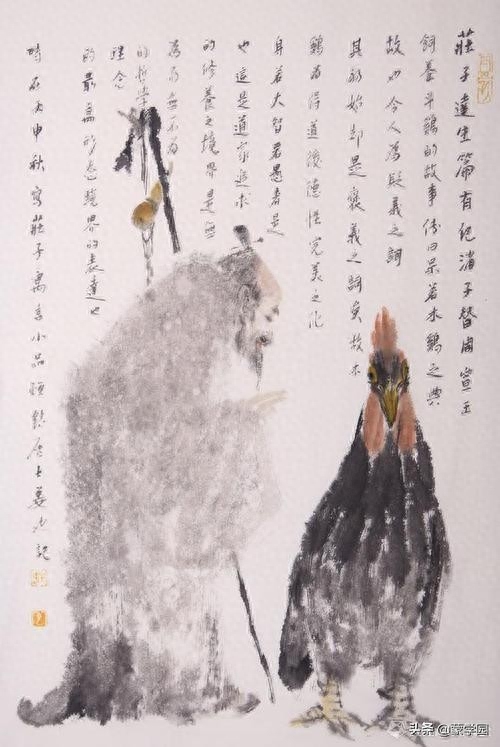 莊子達生篇有紀渻子替周宣王
飼養斗鷄的故事傳曰呆若木鷄之典
故也今人為貶義之詞
其初始却是褒義之詞矣故木
鷄為得道後德性完美之化
身若大智若愚者是
也這是道家追求
的修養之境界是無
為而無不為
的哲學
理念
的最高形态境界的表達也
時在丙申秋寫莊子寓言小品 居士姜 記
头条 @蒙学园